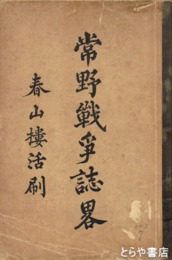 常野戦争誌畧
春山樓活刷
とらや書店